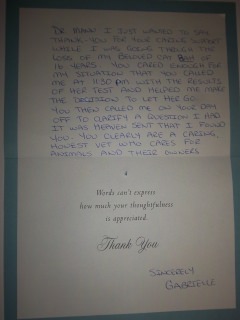 DR. MANN I JUST WANTED TO SAY
THANK YOU FOR YOUR CARING SUPPORT
WHILE I WAS GOING THOUGH THE
LOSS OF MY BELOVED CAT BOO OF
16 YEARS. YOU CARED ENOUGH FOR
MY SITUATION THAT YOU CALLED
ME AT 11:30 PM WITH THE RESULTS
OF HER TEST AND HELPED ME MAKE
THE DECISION TO LET HER GO.
YOU THEN CALLED ME ON YOUR DAY
OFF TO CLARIFY A QUESTION I HAD
IT WAS HEAVEN SENT THAT I FOUND
YOU. YOU CLEARLY ARE A CARING,
HONEST VET WHO CARES FOR
ANIMALS AND THEIR OWNERS
Words can't express
how much your thoughtfulness
is appreciated.
Thank You
SINCERELY
GABRIELLE